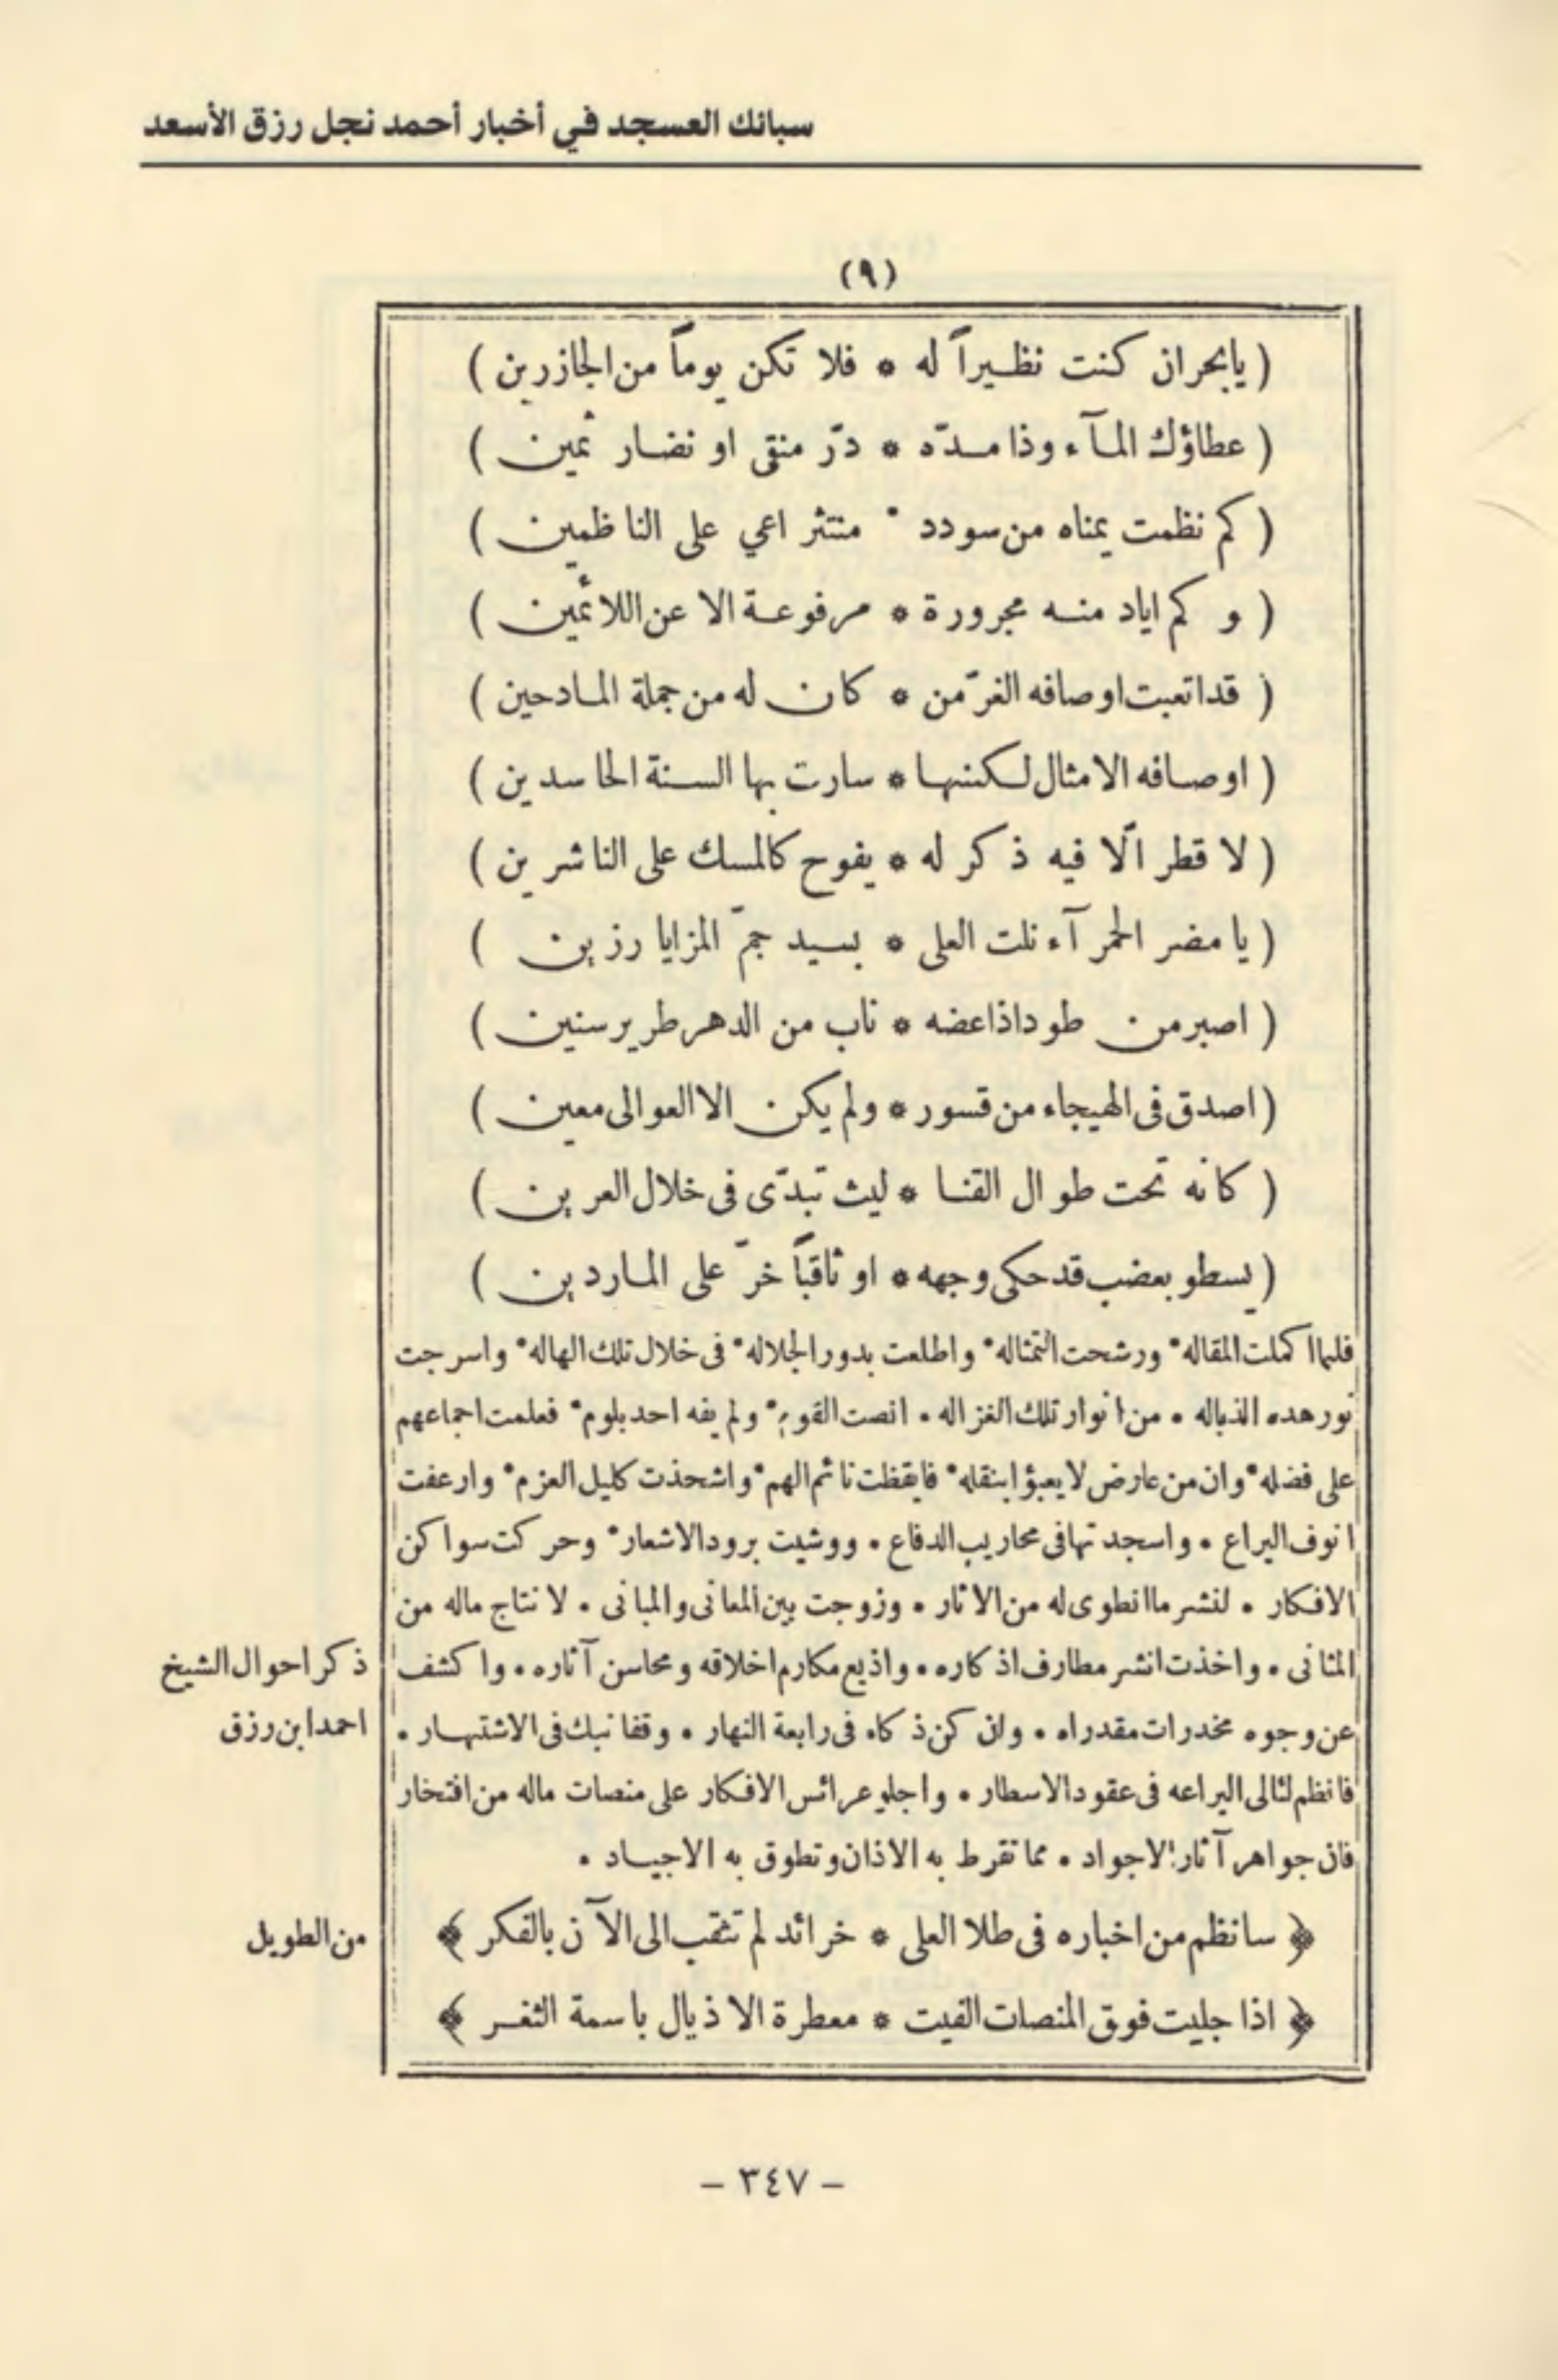 سبائك العسجد في أخبار أحمد نجل رزق الأسعد
(٩)
( يابحر ان كنت نظيراً له * فلا تكن يوماً من الجازرين )
( عطاؤك المآء وذا مدّه * درّ منقى او نضار ثمين )
( كم نظمت يمناه من سودد * منتثر اعي على الناظمين )
( و كم اياد منه مجرورة * مرفوعة الا عن اللائمين )
( قد اتعبت اوصافه الغرّ من * كان له من جملة المادحين )
( اوصافه الامثال لكنها * سارت بها السنة الحاسدين )
( لا قطر الّا فيه ذكر له * يفوح كالمسك على الناشرين )
( يا مضر الحمرآء نلت العلى * بسيد جمّ المزايا رزين )
( اصبر من طود اذا عضه * ناب من الدهر طرير سنين )
( اصدق فى الهيجاء من قسور * ولم يكن الا العوالى معين )
( كانه تحت طوال القنا * ليث تبدّى فى خلال العرين )
( يسطو بعضب قد حكى وجهه * او ثاقباً خرّ على الماردين )
فلما اكملت المقاله * ورشحت التمثاله * واطلعت بدور الجلاله * فى خلال تلك الهاله * واسرجت
نور هذه الذباله • من انوار تلك الغزاله • انصت القوم * ولم يفه احد بلوم * فعلمت اجماعهم
على فضله * وان من عارض لا يعبؤا بنقله * فايقظت نائم الهم * واشحذت كليل العزم * وارعفت
انوف اليراع • واسجدتها فى محاريب الدفاع • ووشيت برود الاشعار * وحركت سواكن
الافكار • لنشر ما انطوى له من الاثار • وزوجت بين المعانى والمبانى • لانتاج ماله من
المثانى • واخذت انشر مطارف اذكاره • واذيع مكارم اخلاقه ومحاسن آثاره • واكشف
ذكر احوال الشيخ
عن وجوه مخدرات مقدراه • وان كن ذكاء فى رابعة النهار • وقفا نبك فى الاشتهار •
احمد ابن رزق
فانظم لئالى البراعه فى عقود الاسطار • واجلو عرائس الافكار على منصات ماله من افتخار
فان جواهر آثار الاجواد • مما تقرط به الاذان وتطوق به الاجياد •
﴿ سانظم من اخباره فى طلا العلى * خرائد لم تثقب الى الآن بالفكر ﴾
من الطويل
﴿ اذا جليت فوق المنصات الفيت * معطرة الاذيال باسمة الثغر ﴾
- ٣٤٧ -